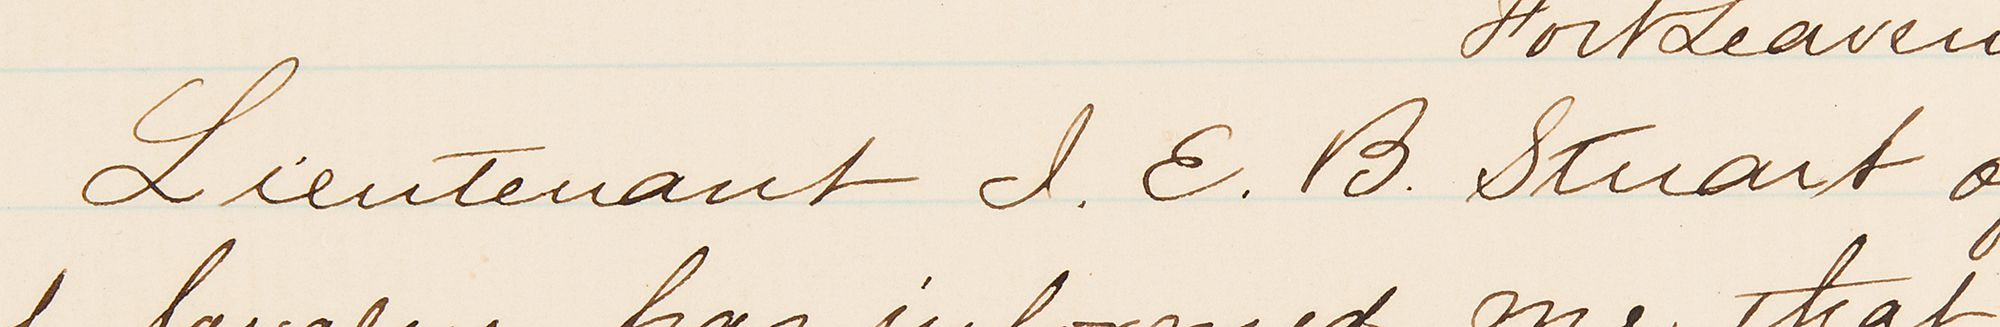 Fort Leaven
Lieutenant J. E. B. Stuart of
Cavalry has informed me that